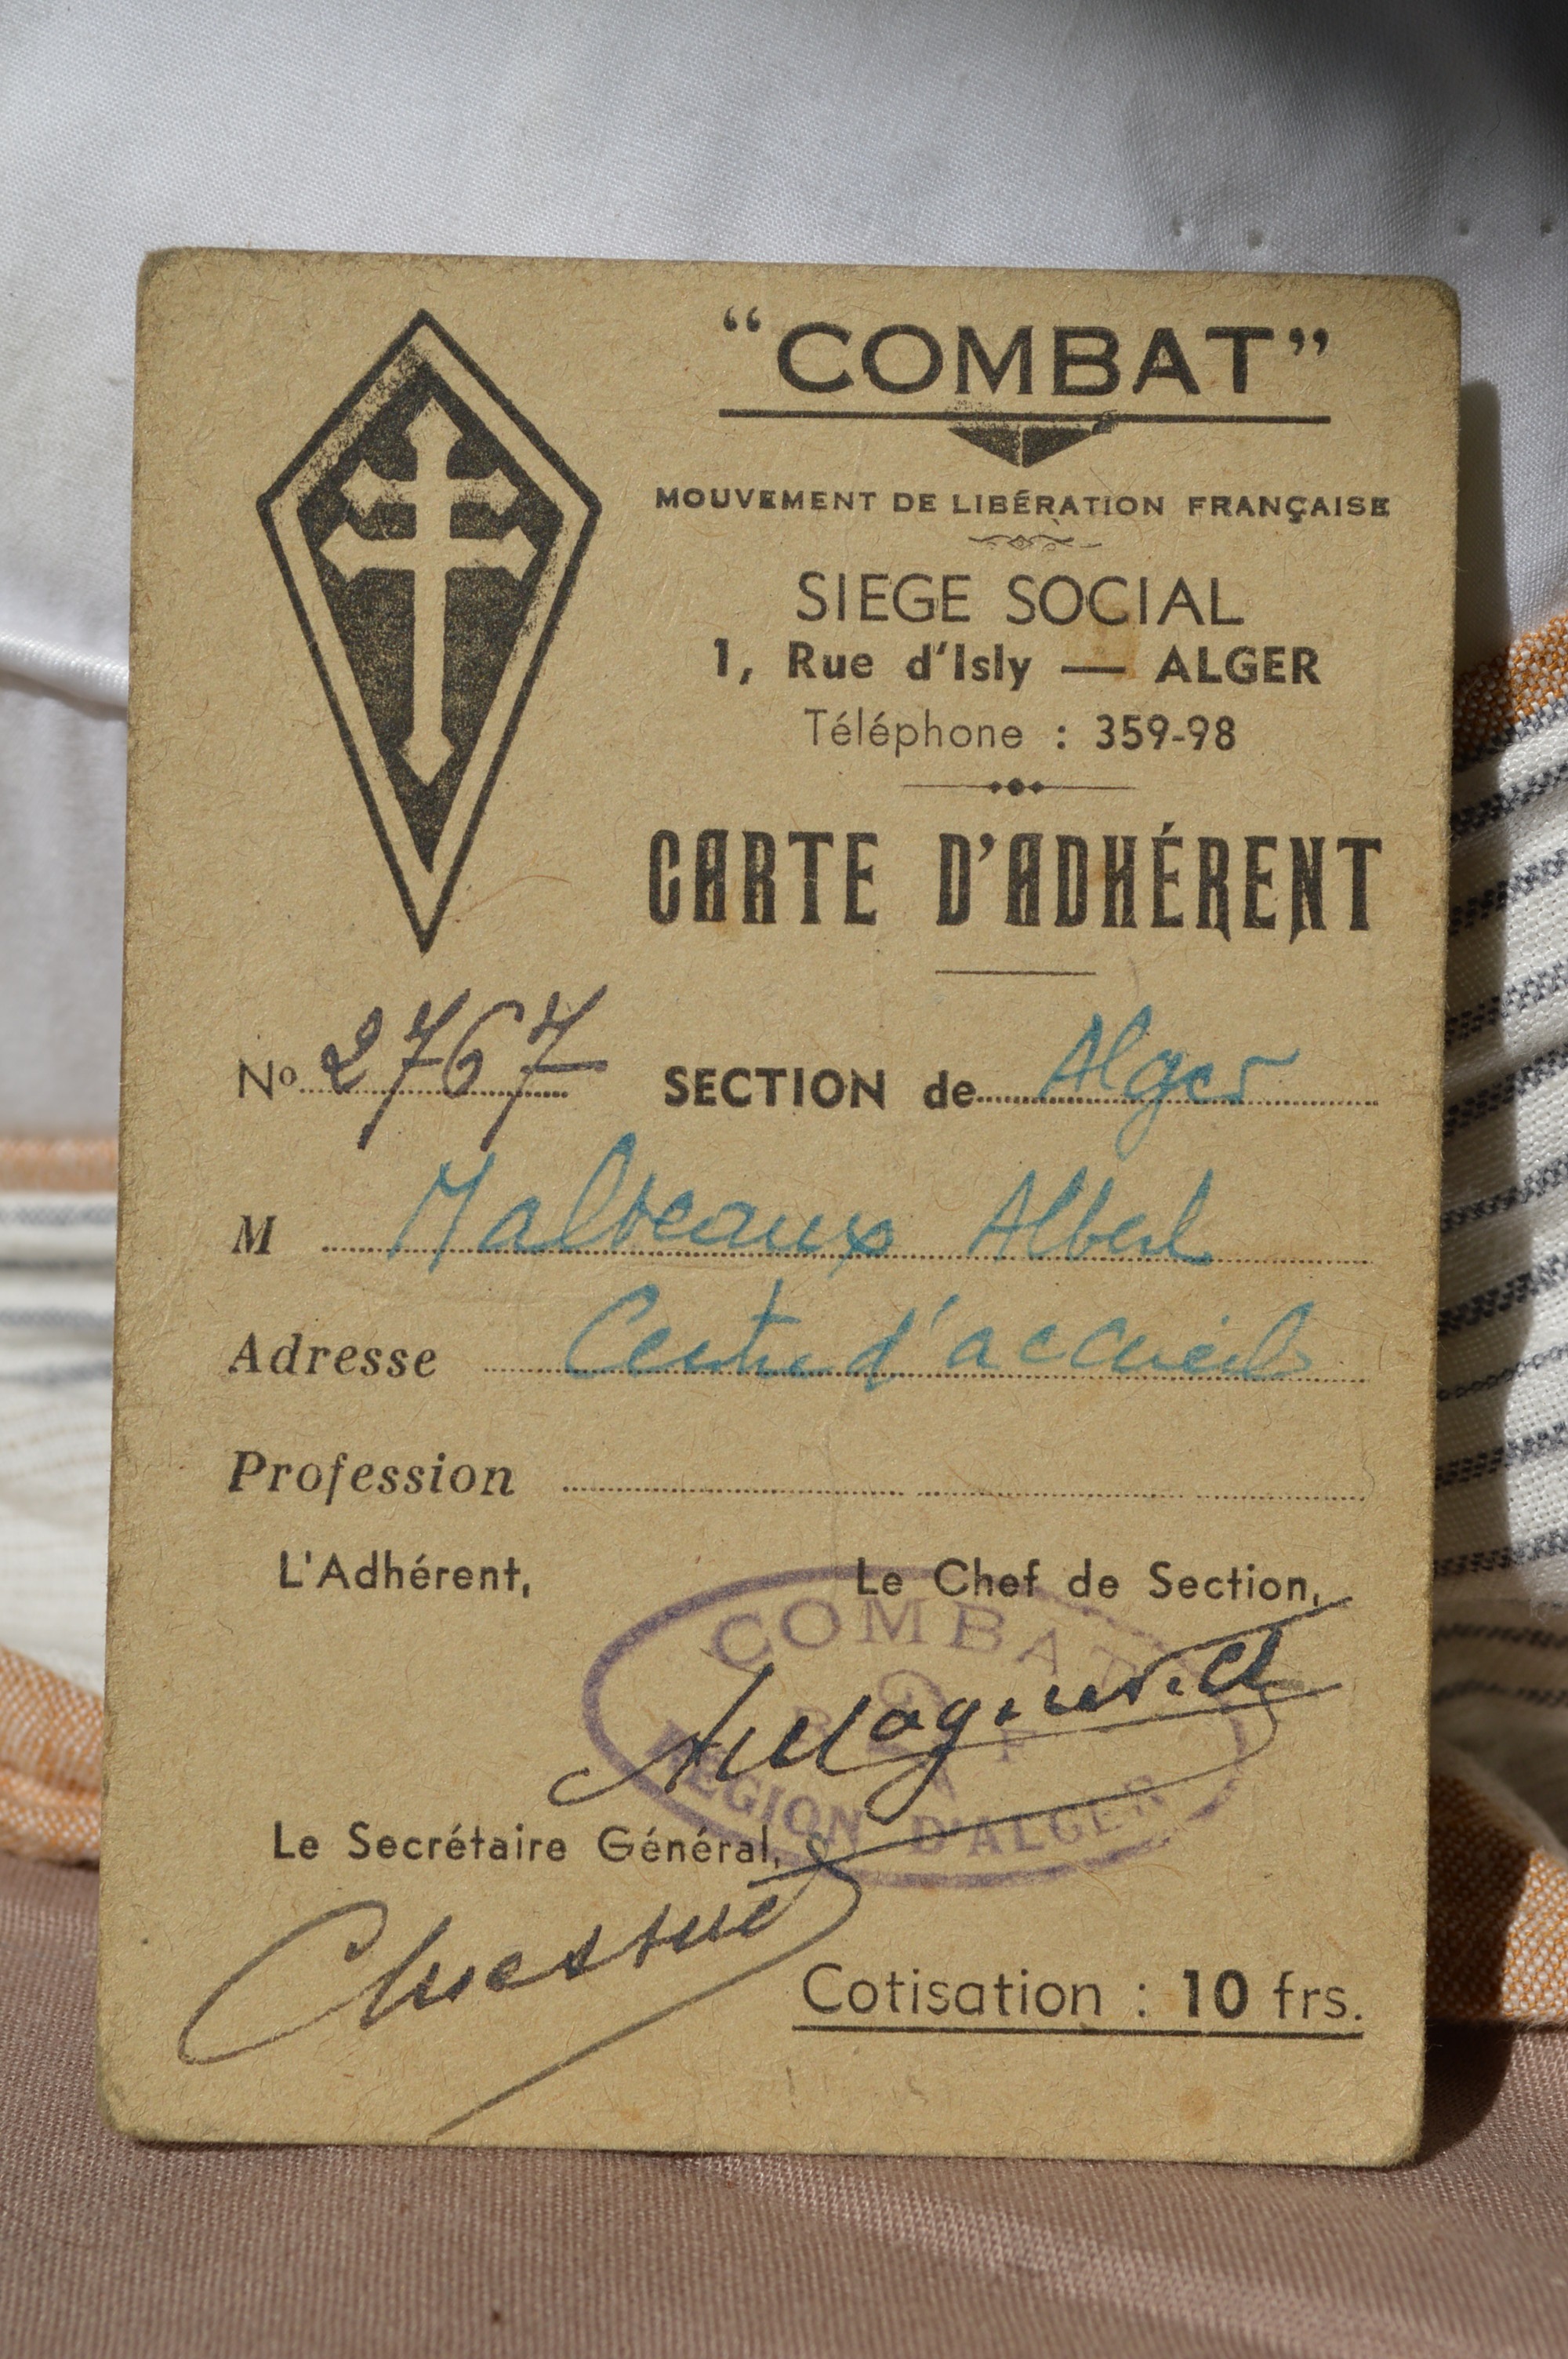 “COMBAT”
MOUVEMENT DE LIBÉRATION FRANÇAISE
SIEGE SOCIAL
1, Rue d'Isly — ALGER
Téléphone : 359-98
CARTE D'ADHÉRENT
No 2767 SECTION de Alger
M Malbeaux Albert
Adresse Centre d'accueil
Profession
L'Adhérent, Le Chef de Section,
COMBAT
RÉGION D'ALGER
Le Secrétaire Général,
Cotisation : 10 frs.